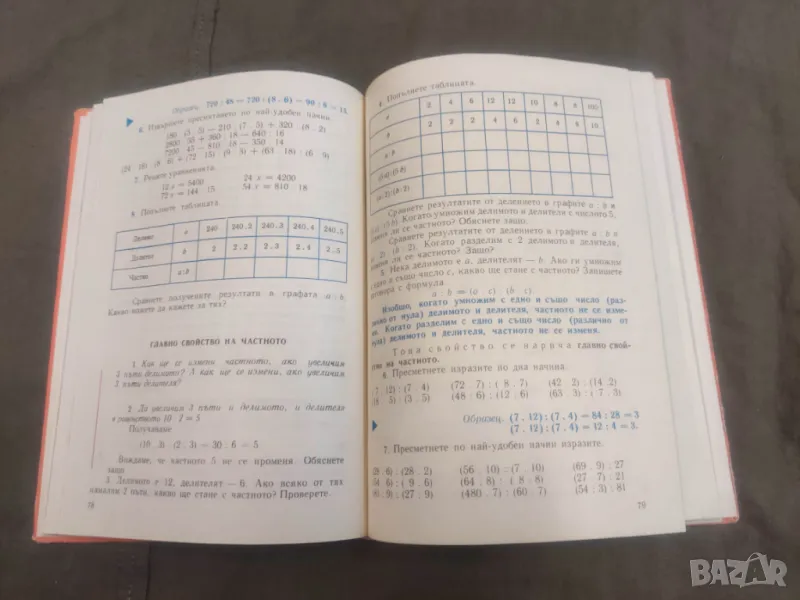 Образец. 720 : 48 = 720 : (8 . 6) = 90 : 6 = 15
6. Извършете пресмятането по най-удобен начин.
7. Решете уравненията.
12 x = 5400 24 x = 4200
72 x = 144 . 15 54 x = 810 . 18
8. Попълнете таблицата.
Делимо a 240 240.5 240.3 240.4 240.5
Делител b 2 2.2 2.3 2.4 2.5
Частно a:b
Сравнете получените резултати в графата a : b.
Какво можете да кажете за тях?
ГЛАВНО СВОЙСТВО НА ЧАСТНОТО
1. Как ще се измени частното, ако увеличим
пъти делимото? А как ще се измени, ако увеличим
пъти делителя?
2. Да увеличим 3 пъти и делимото, и делителя
в равенството 10 : 2 = 5
Получаваме
(10 . 3) : (2 . 3) = 30 : 6 = 5
Виждаме, че частното 5 не се променя. Обяснете
защо
3. Делимото е 12, делителят — 6. Ако всяко от тях
намалим 2 пъти, какво ще стане с частното? Проверете.
78
4. Попълнете таблицата.
a 2 4 6 12 12 10 4 8 100
b 2 2 3 4 6 2 4 8 10
a:b
(5a):(5b)
(a:2):(b:2)
Сравнете резултатите от делението в графите a : b и
(5a) : (5b). Когато умножим делимото и делителя с числото 5,
ли се частното? Обяснете защо.
Сравнете резултатите от делението в графите a : b и
(a : 2) : (b : 2). Когато разделим с 2 делимото и делителя,
ли се частното? Защо?
5. Нека делимото е a, делителят — b. Ако ги умножим
с едно и също число c, какво ще стане с частното? Запишете
отговора с формула
a : b = (a . c) : (b . c)
Изобщо, когато умножим с едно и също число (раз-
лично от нула) делимото и делителя, частното не се изме-
ня. Когато разделим с едно и също число (различно от
нула) делимото и делителя, частното не се изменя.
Това свойство се нарича главно свой-
ство на частното.
6. Пресметнете изразите по два начина.
(7 . 12) : (7 . 4) (72 . 7) : (8 . 7) (42 . 2) : (14 . 2)
5) : (3 . 5) (48 : 6) : (12 : 6) (63 : 3) : (7 . 3)
Образец. (7 . 12) : (7 . 4) = 84 : 28 = 3
(7 . 12) : (7 . 4) = 12 : 4 = 3.
7. Пресметнете по най-удобен начин изразите.
(28 . 6) : (28 . 2) (56 . 10) : (7 . 10) (69 . 9) : 27
(54 . 6) : (9 . 6) (64 . 8) : (8 . 8) (27 . 7) : 21
(81 . 9) : (27 . 9) (480 . 7) : (60 . 7) (54 . 3) : 81
79
BAZAR